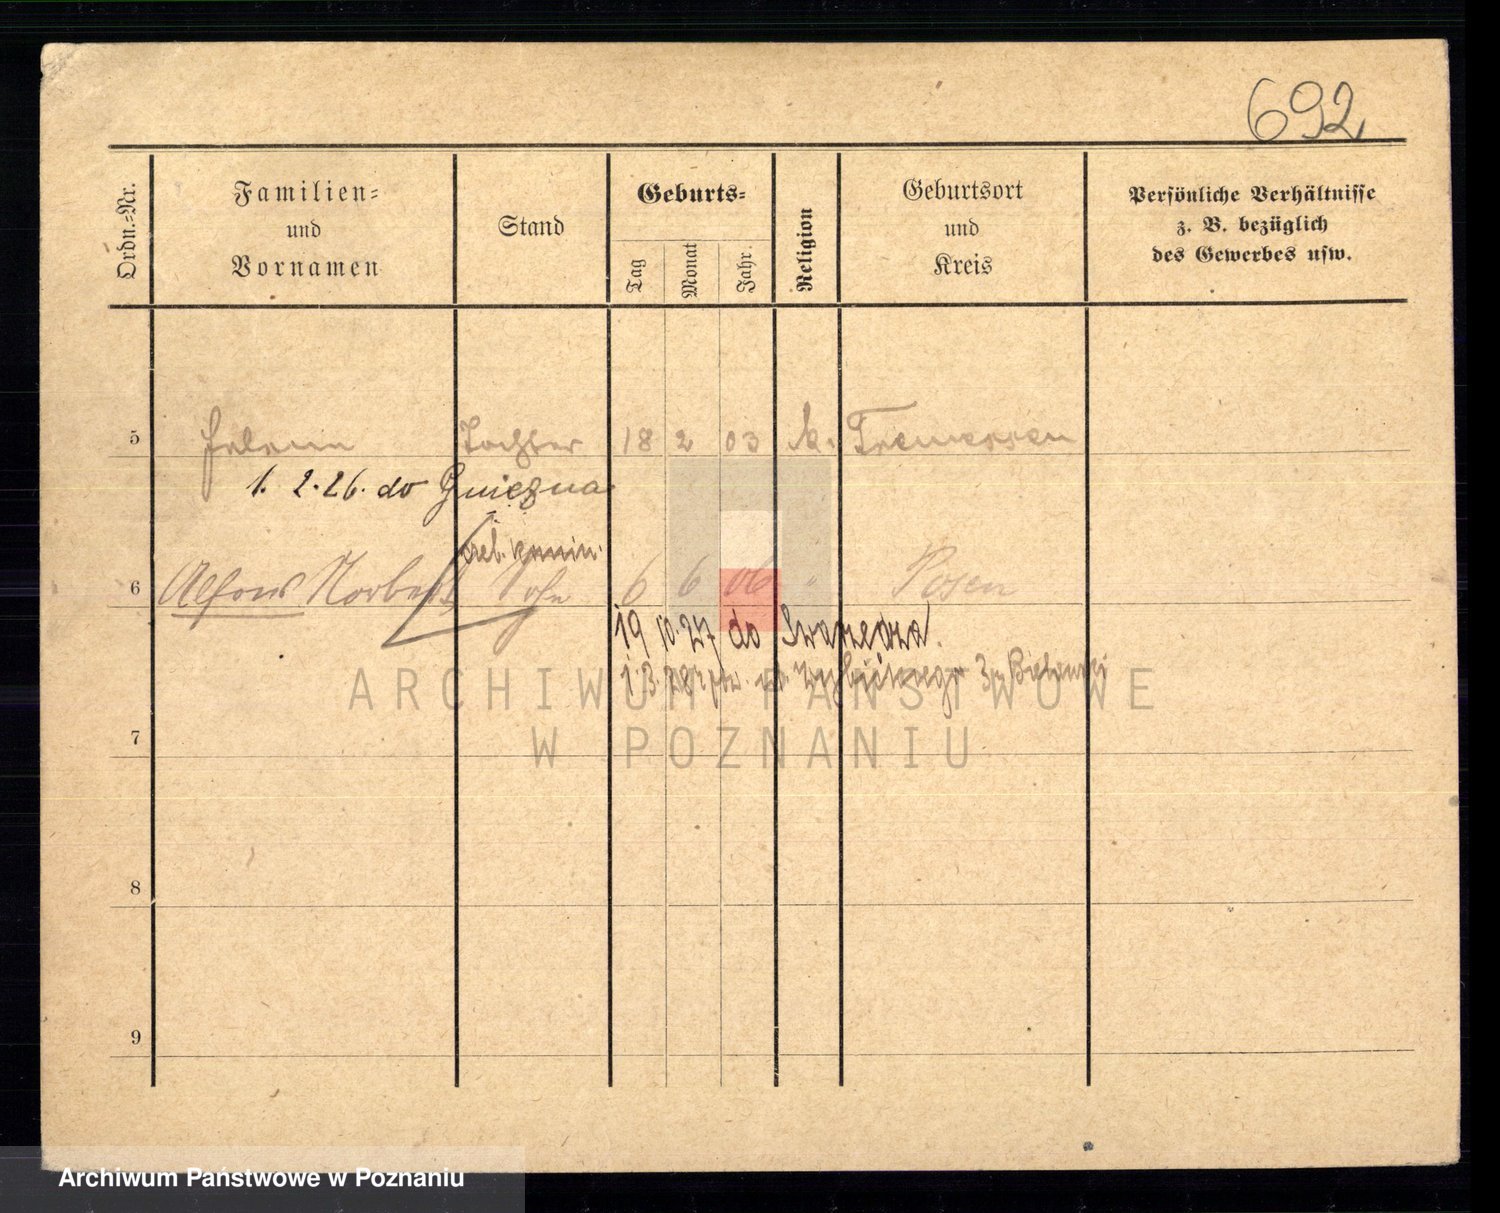 692
Ordn.=Nr.
Familien=
und
Vornamen
Stand
Geburts=
Tag
Monat
Jahr.
Religion
Geburtsort
und
Kreis
Persönliche Verhältnisse
z. B. bezüglich
des Gewerbes usw.
5 Tochter 18 2 03 k. Tremessen
1. 2. 26. do Gniezna
6 Alfons Norbert Sohn 6 6 06 " Posen
19 10. 27 do Swarzędza.
ARCHIWUM PAŃSTWOWE
W POZNANIU
7
8
9
Archiwum Państwowe w Poznaniu